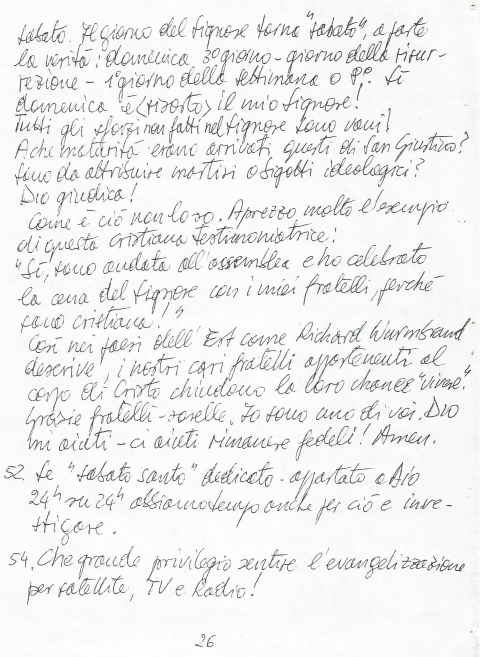 sabato. Il giorno del Signore torna "sabato", a parte
la verità: domenica 3º giorno - giorno della risur-
rezione - 1º giorno della settimana o Pº. Sì
domenica è <risorto> il mio Signore!
Tutti gli sforzi non fatti nel Signore sono vani!
A che maturità erano arrivati questi di San Giustino?
Sono da attribuire martiri o sigotti ideologici?
Dio giudica!
Come è ciò non lo so. Aprezzo molto l'esempio
di questa cristiana testimoniatrice!
"Sì, sono andata all'assemblea e ho celebrato
la cena del Signore con i miei fratelli, perché
sono cristiana!"
Così nei paesi dell'Est come Richard Wurmbrand
descrive, i nostri cari fratelli appartenenti al
corpo di Cristo chiudono la loro chance "vivere".
Grazie fratelli - sorelle. Io sono uno di voi. Dio
mi aiuti - ci aiuti rimanere fedeli! Amen.
52. Se "sabato santo" dedicato - appartato a Dio
24h su 24h abbiamo tempo anche per ciò e inve-
stigare.
54. Che grande privilegio sentire l'evangelizzazione
per satellite, TV e Radio!
26